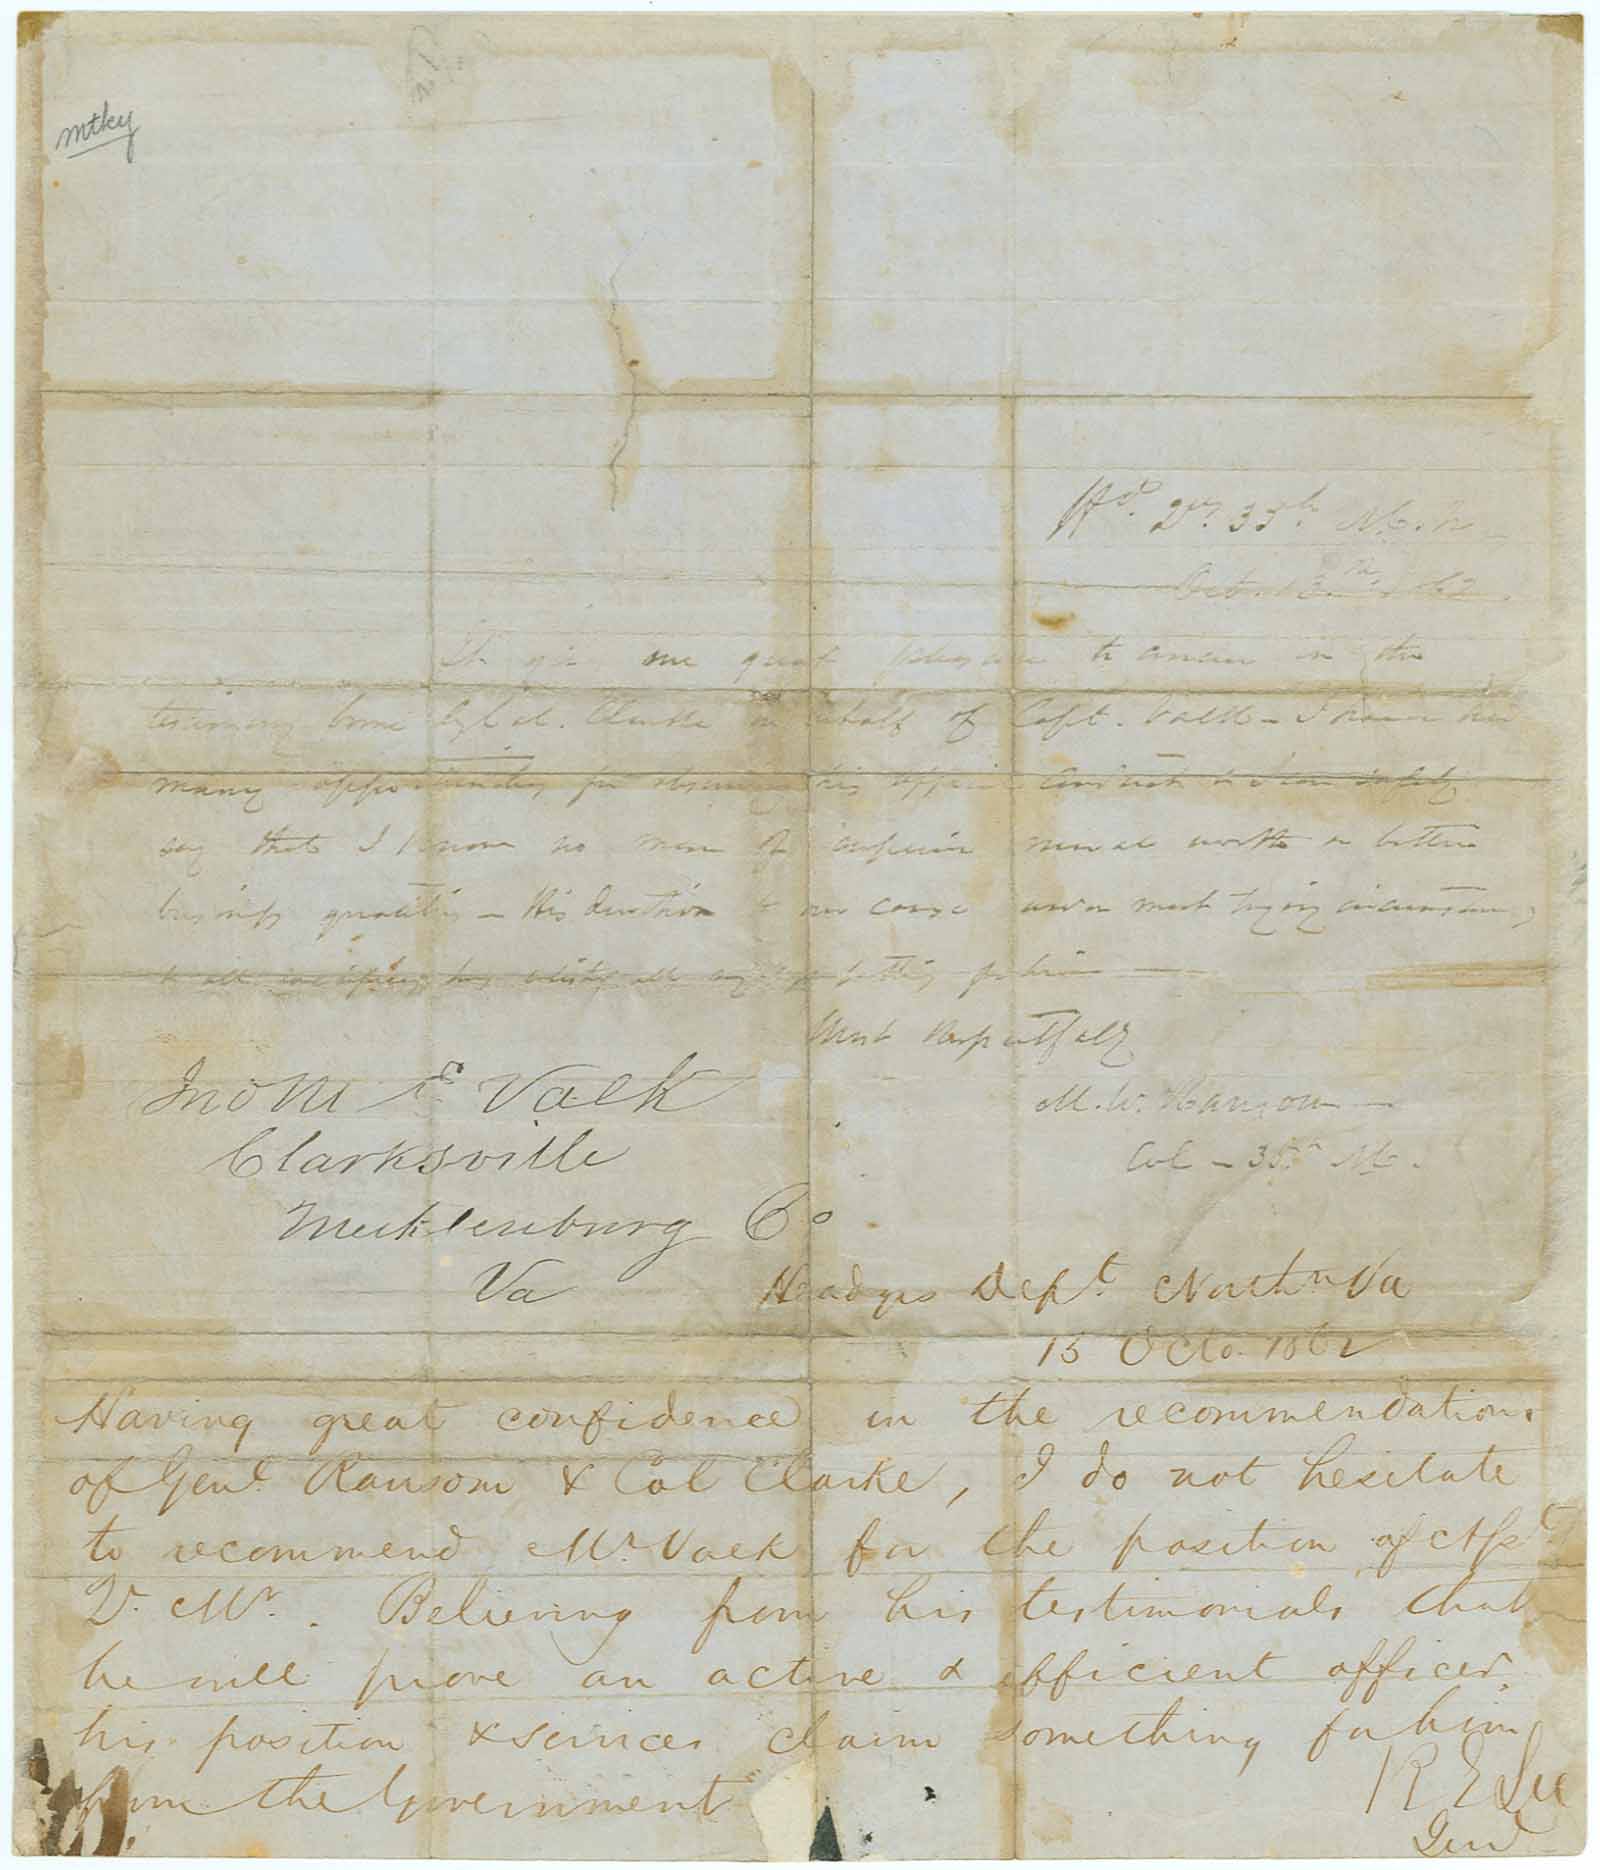 mtky
Hd. Qrs. 35th N.C.
Octo. 13th 1862
It me great pleasure to concur in the
testimony borne by Col. Clarke in behalf of Capt. Valk - I have had
many opportunities for observing his official conduct & I can safely
say that I know no man of superior moral worth or better
business qualities - His devotion to our cause under most trying circumstances
for him
Most Respectfully
M. W. Ransom
Col - 35th N.C.
Jno M Valk
Clarksville
Mecklenburg Co
Va
Headqrs Dept. Northn Va
15 Octo. 1862
Having great confidence in the recommendations
of Genl. Ransom & Col Clarke, I do not hesitate
to recommend Mr. Valk for the position of Asst.
Qr. Mr. . Believing from his testimonials that
he will prove an active & efficient officer,
his position & services claim something for him
from the Government
R E Lee
Genl